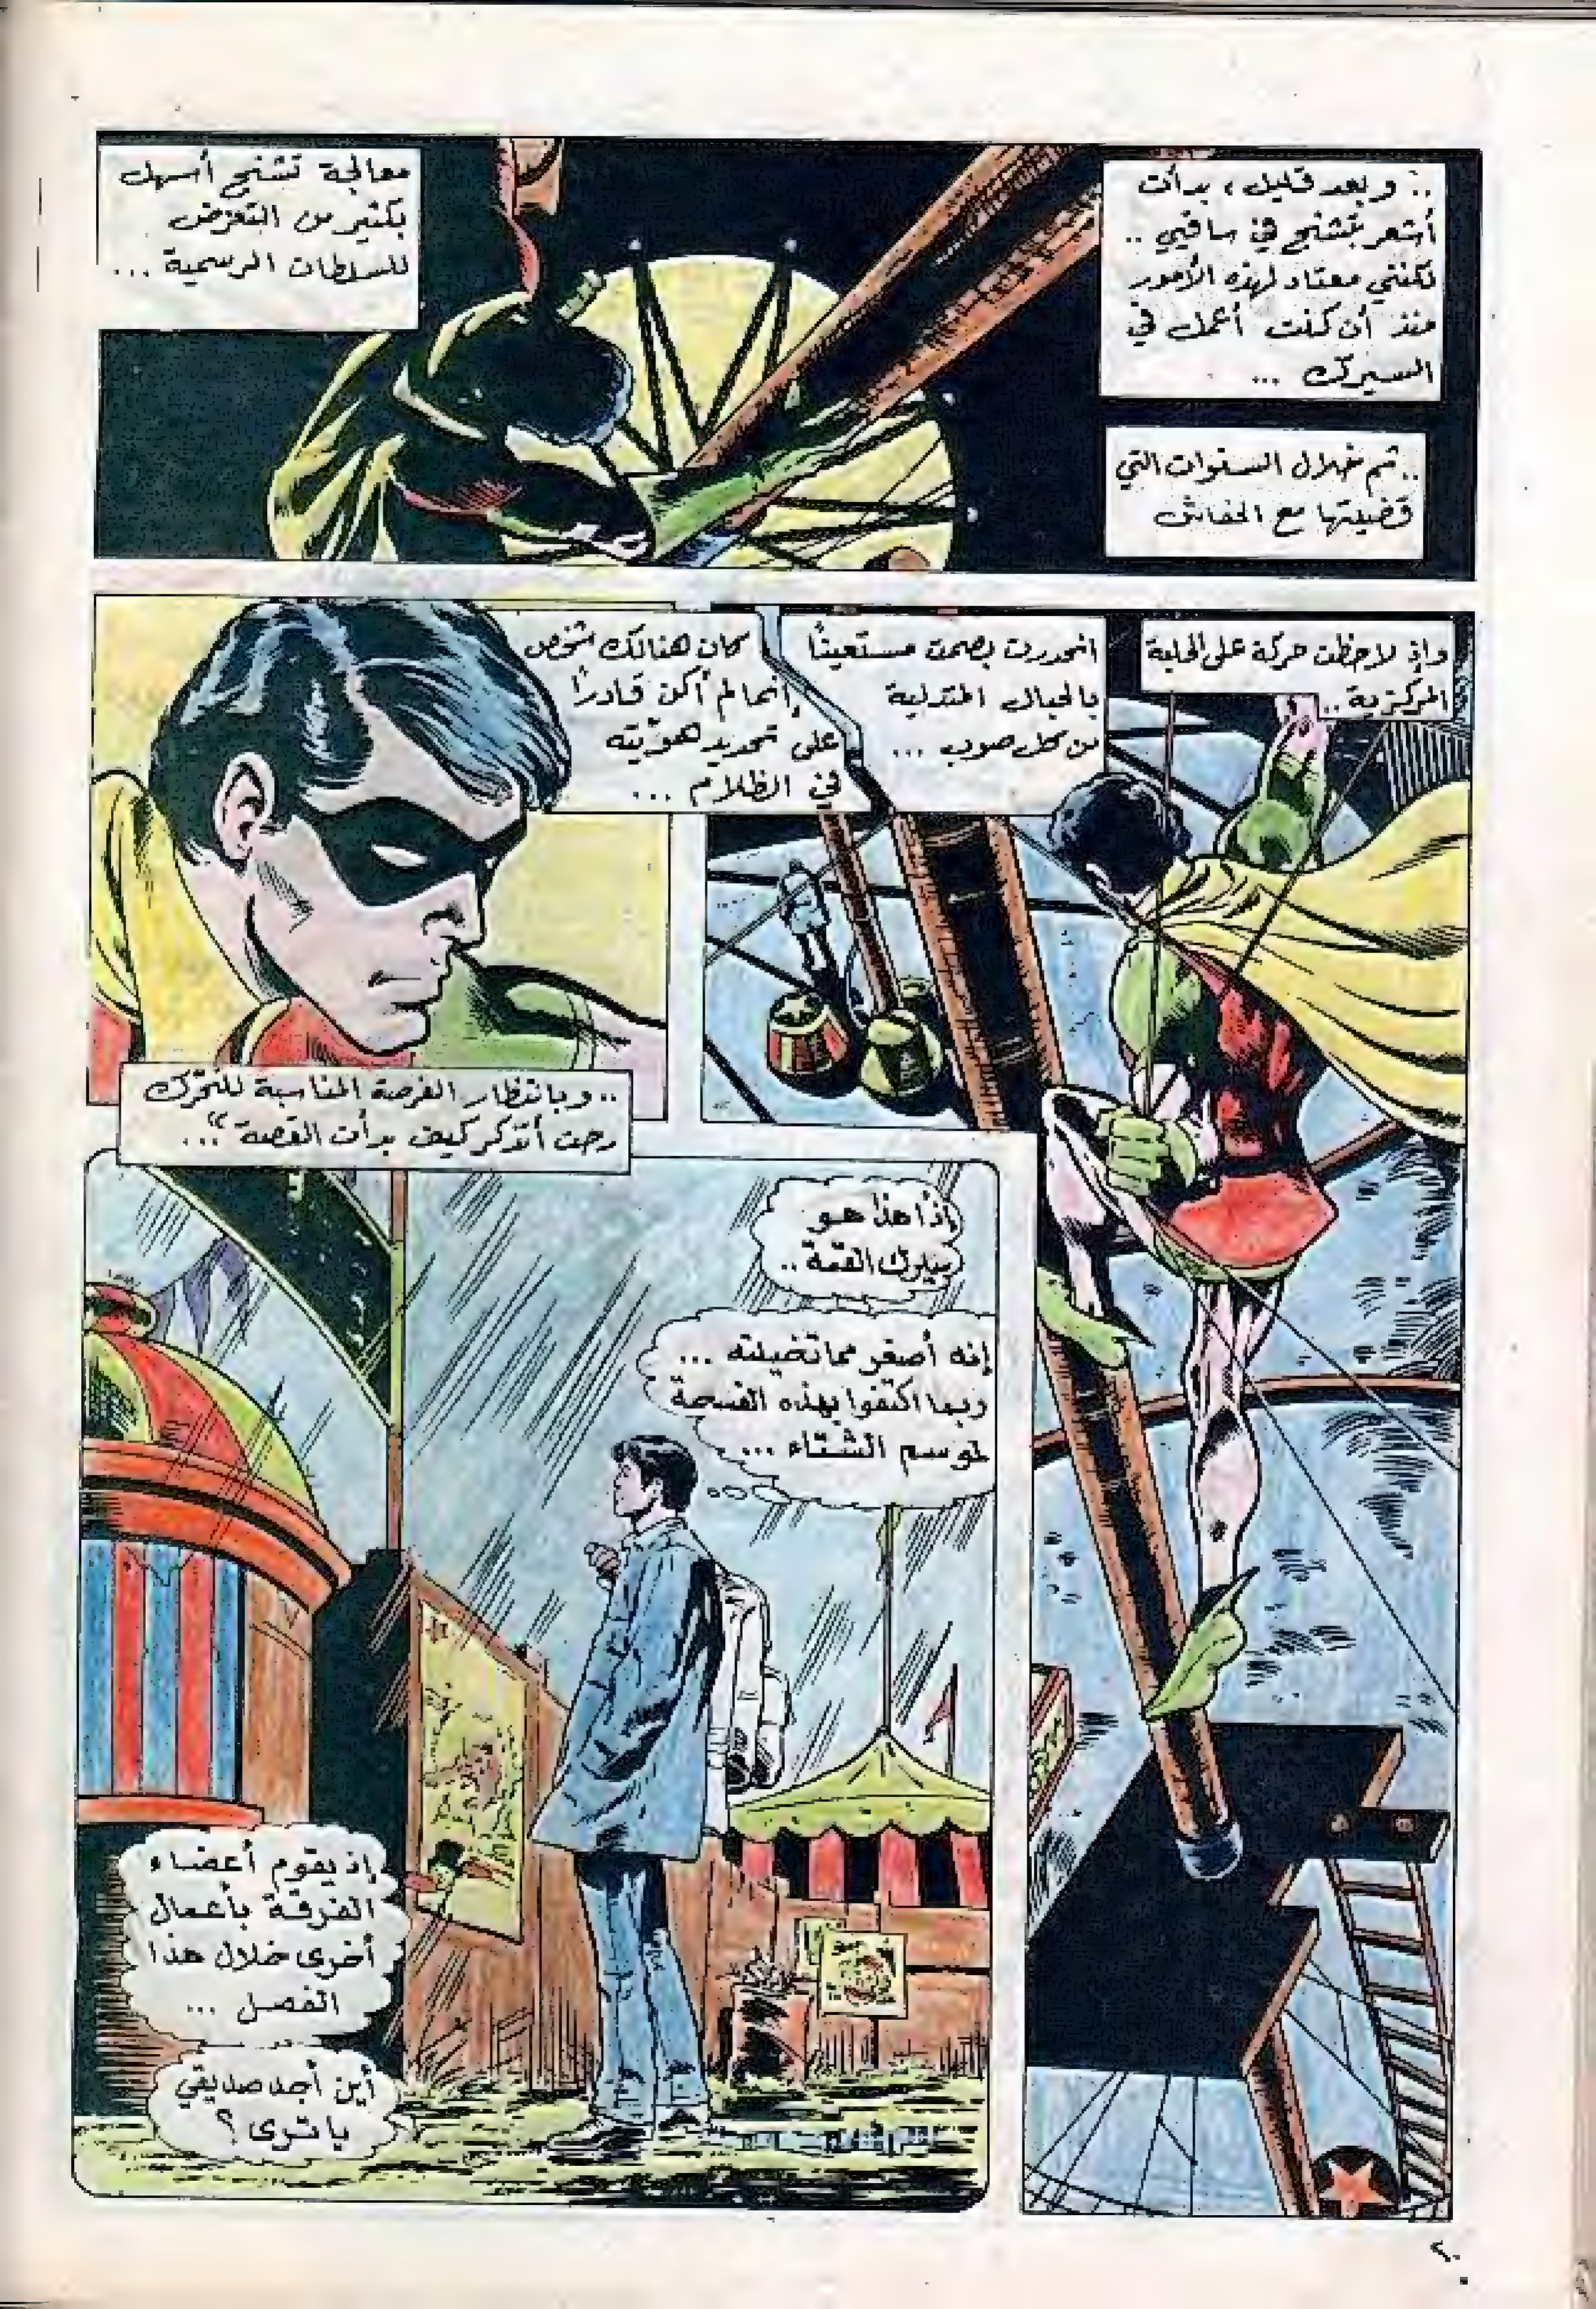 .. وبعد قليل، بدأت
أشعر بتشنج في ساقيي ..
لكنني معتاد لهذه الأمور
منذ أن كنت أعمل في
السيرك ...
.. ثم خلال السنوات التي
قضيتها مع الخفاش
معالجة تشنج أسهل
بكثير من التعرض
للسلطات الرسمية ...
وإذ لاحظت حركة على الحلبة
المركزية ..
انحدرت بصمت مستعينًا
بالحبال المتدلية
من كل صوب ...
كان هنالك شخص
إنما لم أكن قادرًا
على تحديد هويّته
في الظلام ...
.. وبانتظار الفرصة المناسبة للتحرّك
رحت أتذكر كيف بدأت القصة" ...
إذا هذا هو
سيرك القمة ..
إنه أصغر مما تخيلته ...
ربما اكتفوا بهذه الفسحة
لموسم الشتاء ...
إذ يقوم أعضاء
الفرقة بأعمال
أخرى خلال هذا
الفصل ...
أين أجد صديقي
يا ترى ؟